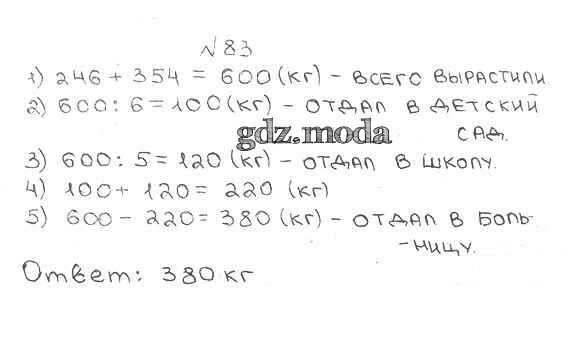 №83
1) 246 + 354 = 600 (кг) - ВСЕГО ВЫРАСТИЛИ
2) 600 : 6 = 100 (кг) - ОТДАЛ В ДЕТСКИЙ
САД.
gdz.moda
3) 600 : 5 = 120 (кг) - ОТДАЛ В ШКОЛУ.
4) 100 + 120 = 220 (кг)
5) 600 - 220 = 380 (кг) - ОТДАЛ В БОЛЬ-
-НИЦУ.
Ответ: 380 кг